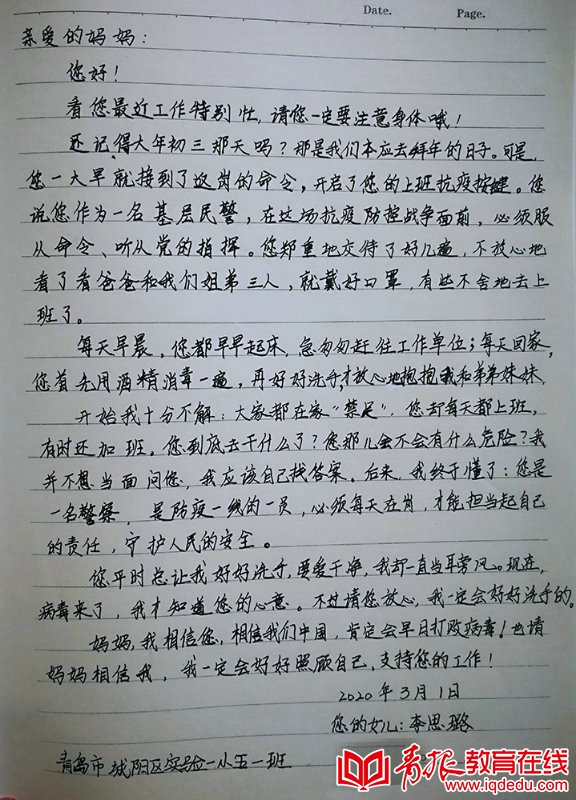 Date. Page.
亲爱的妈妈:
您好!
看您最近工作特别忙,请您一定要注意身体哦!
还记得大年初三那天吗?那是我们本应去拜年的日子。可是,
您一大早就接到了返岗的命令,开启了您的上班抗疫按键。您
说您作为一名基层民警,在这场抗疫防控战争面前,必须服
从命令、听从党的指挥。您郑重地交待了好几遍,不放心地
看了看爸爸和我们姐弟三人,就戴好口罩,有些不舍地去上
班了。
每天早晨,您都早早起床,急匆匆赶往工作单位;每天回家,
您首先用酒精消毒一遍,再好好洗手,才放心地抱抱我和弟弟妹妹。
开始我十分不解:大家都在家"禁足",您却每天都上班,
有时还加班。您到底去干什么了?您那儿会不会有什么危险?我
并不想当面问您,我应该自己找答案。后来,我终于懂了:您是
一名警察,是防疫一线的一员,必须每天在岗,才能担当起自己
的责任,守护人民的安全。
您平时总让我好好洗手,要爱干净,我却一直当耳旁风。现在,
病毒来了,我才知道您的心意。不过请您放心,我一定会好好洗手的。
妈妈,我相信您,相信我们中国,肯定会早日打败病毒!也请
妈妈相信我,我一定会好好照顾自己,支持您的工作!
2020年3月1日
您的女儿:李思璐
青岛市城阳区实验一小五一班
青报教育在线
www.iqdedu.com